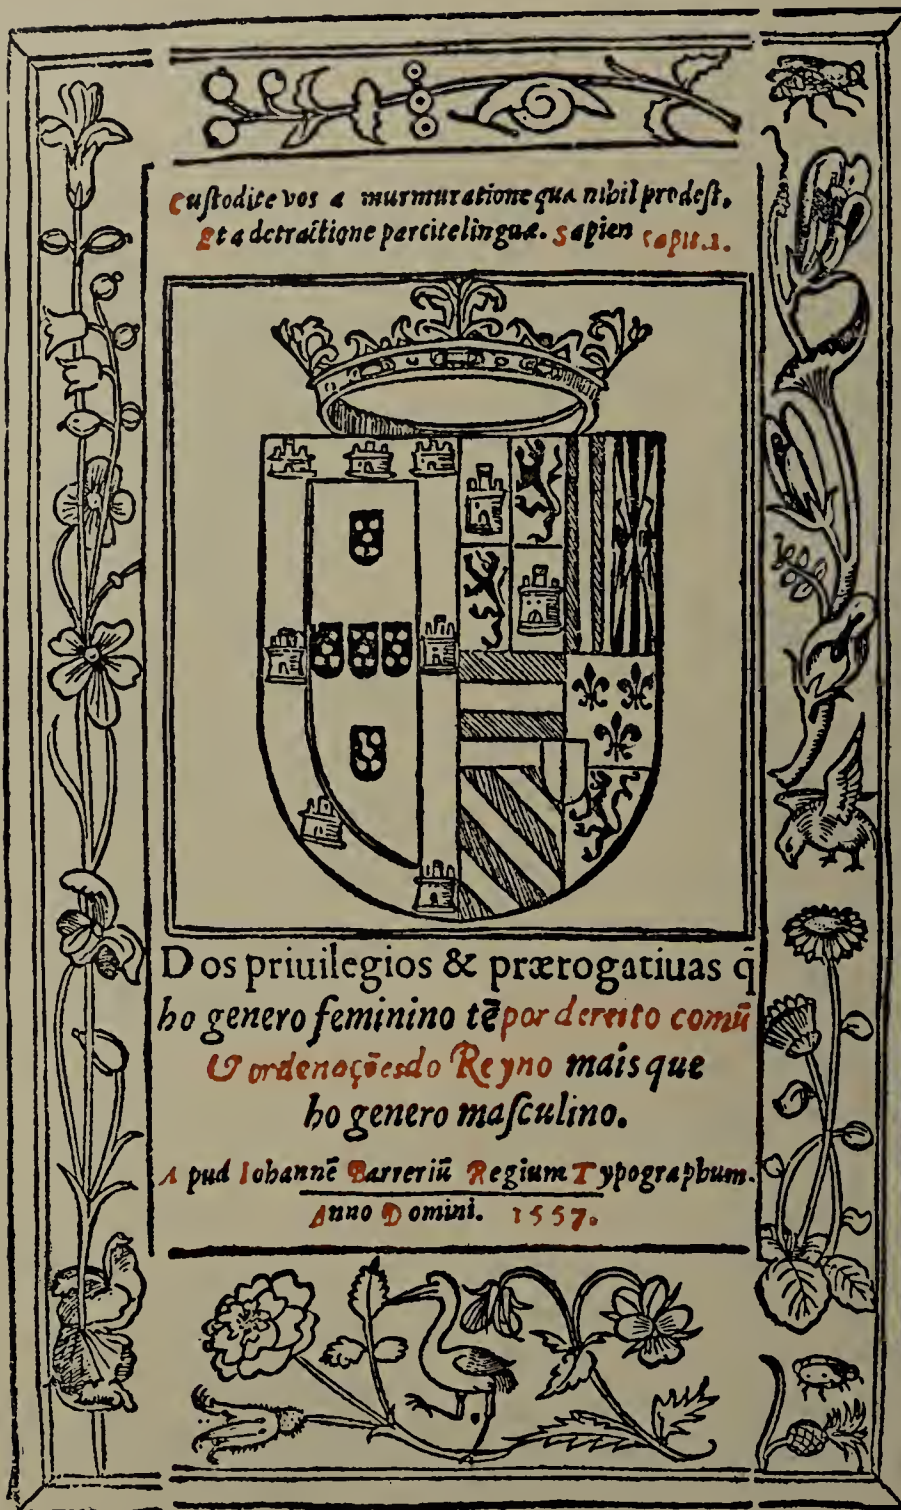 Custodite vos a murmuratione qua nihil prodest,
Et a detractione parcite linguæ. Sapien capit. 1.
Dos priuilegios & prærogatiuas q̃
ho genero feminino tẽ por dereito comũ
& ordenações do Reyno mais que
ho genero maſculino.
Apud Iohannẽ Barreriũ Regium Typographum.
Anno Domini. 1557.